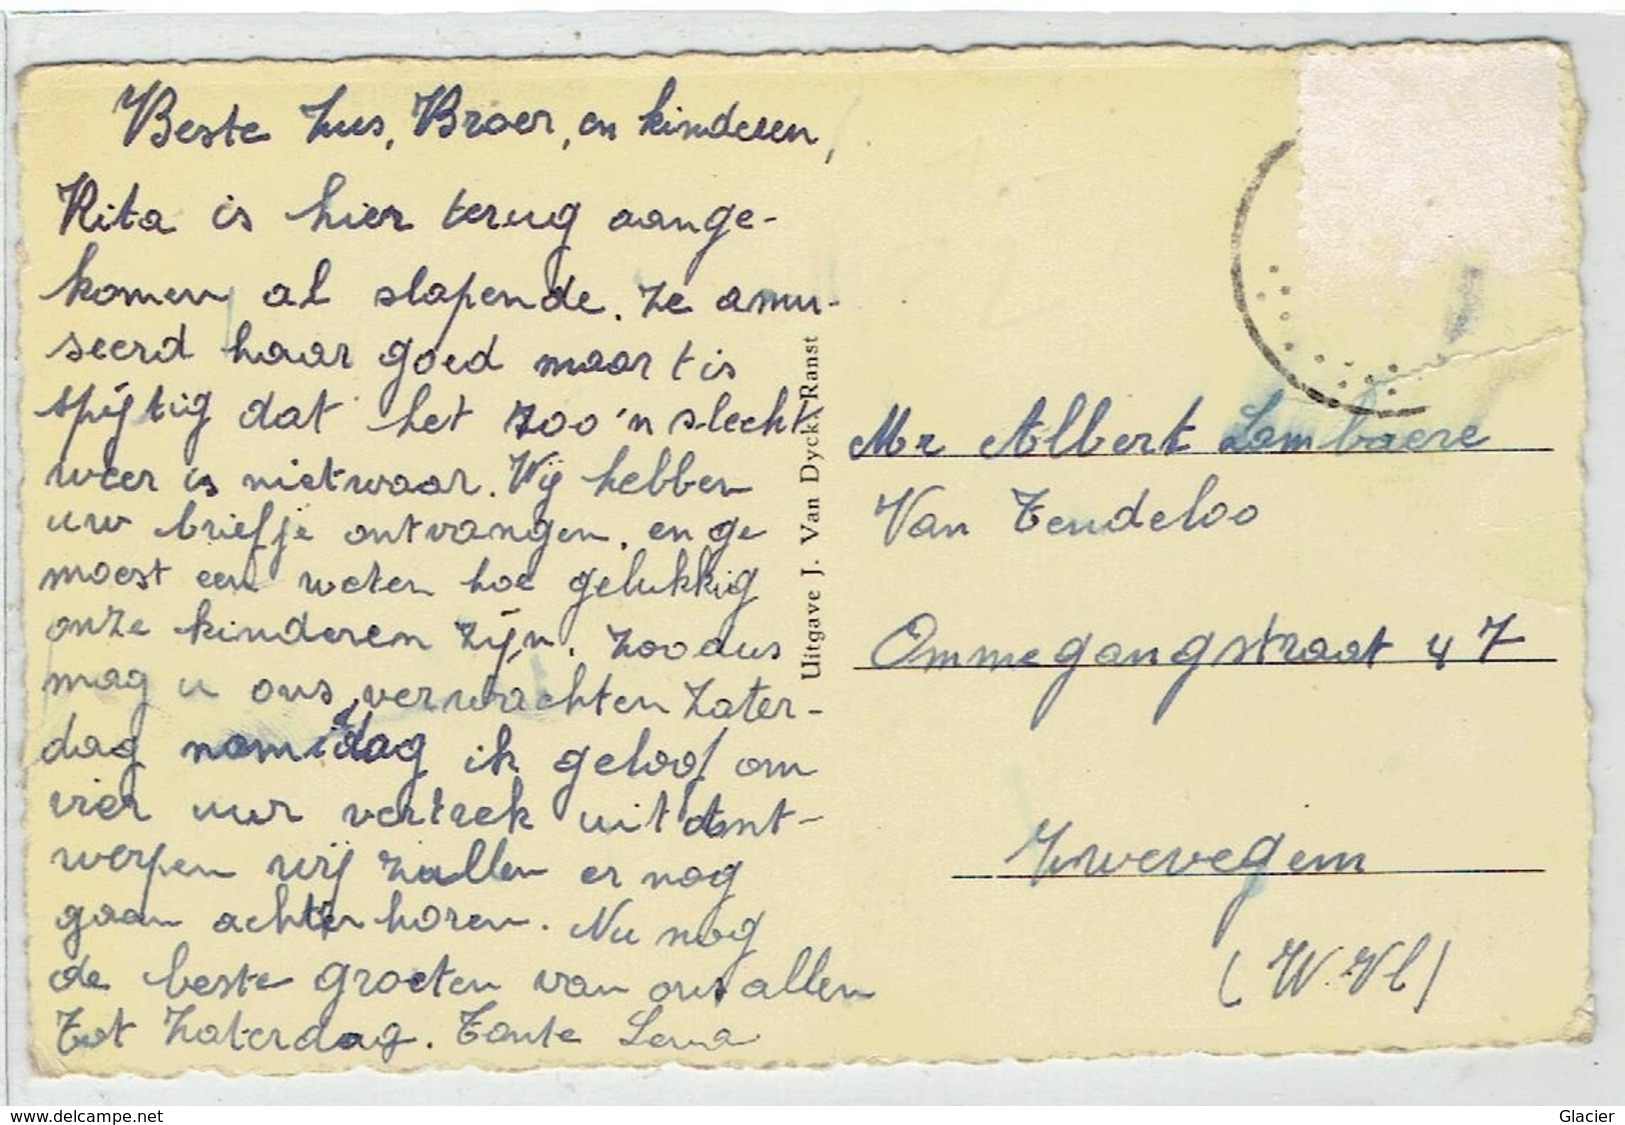 Beste Zus, Broer, en kinderen,
Rita is hier terug aange-
komen al slapende. Ze amu-
seerd haar goed maar t is
spijtig dat het zoo'n slecht
weer is nietwaar. Wij hebben
uw briefje ontvangen. en ge
moest een weten hoe gelukkig
onze kinderen zijn. Zoo dus
mag u ons verwachten Zater-
dag namidag ik geloof om
vier uur vertrek uit Ant-
werpen wij zullen er nog
gaan achter horen. Nu nog
de beste groeten van ons allen
Tot Zaterdag. Tante Lena
Uitgave J. Van Dyck, Ranst
Mr Albert Lambaere
Van Tendeloo
Ommegangstraat 47
Zwevegem
(W. Vl)
www.delcampe.net
Glacier